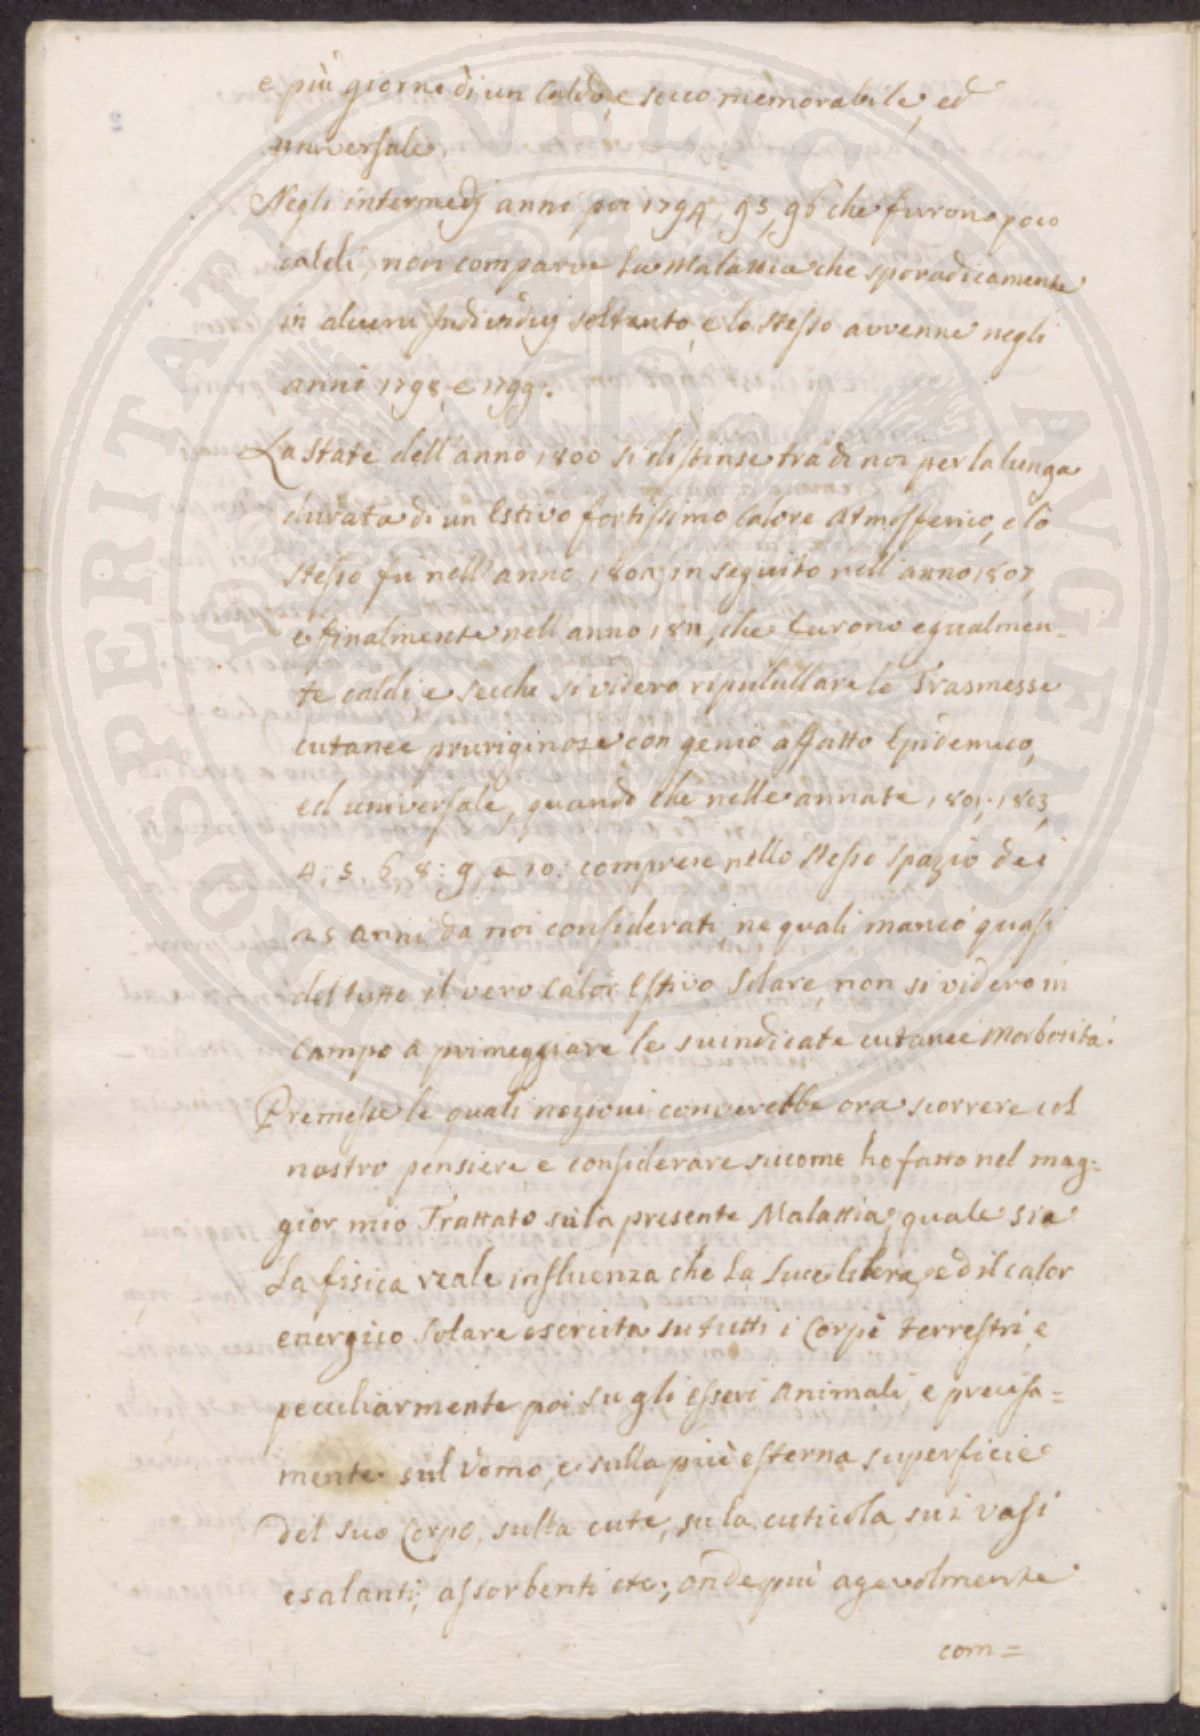 e più giorni di un caldo, e secco memorabile, ed
universale.
Negli intermedj anni poi 1794, 95, 96 che furono poco
caldi, non comparve la Malattia che sporadicamente
in alcuni Individuj soltanto, e lo stesso avvenne negli
anni 1798, e 1799.
La state dell'anno 1800 si distinse trà di noi per la lunga
durata di un Estivo fortissimo Calore Atmosferico, e lo
stesso fu nell'anno in seguito nell'anno 1807,
e finalmente nell'anno 1811, che furono egualmen=
te caldi e secchi si videro ripulullare le Trasmesse
cutanee pruriginose con genio affatto Epidemico,
ed universale, quando che nelle annate 1801, 1803,
4, 5, 6, 8, 9, e 10: comprese nello stesso spazio dei
25 anni da noi considerati, ne quali mancò quasi
del tutto il vero calor Estivo Solare, non si videro in
Campo a primeggiare le suindicate cutanee Morbosità.
Premesse le quali nozioni converebbe ora scorrere col
nostro pensiere e considerare siccome ho fatto nel mag=
gior mio Trattato sù la presente Malattia, quale sia
La fisica reale influenza che La Luce libera, ed il calor
energico Solare esercita su tutti i Corpi terrestri, e
peculiarmente poi su gli esseri Animali, e precisa=
mente sul Uomo, e sulla più esterna superficie
Del suo Corpo, sulla cute, su la cuticola, sui vasi
esalanti, assorbenti etc:, onde più agevolmente
com=
PROSPERITATI PUBLICAE AUGENDAE